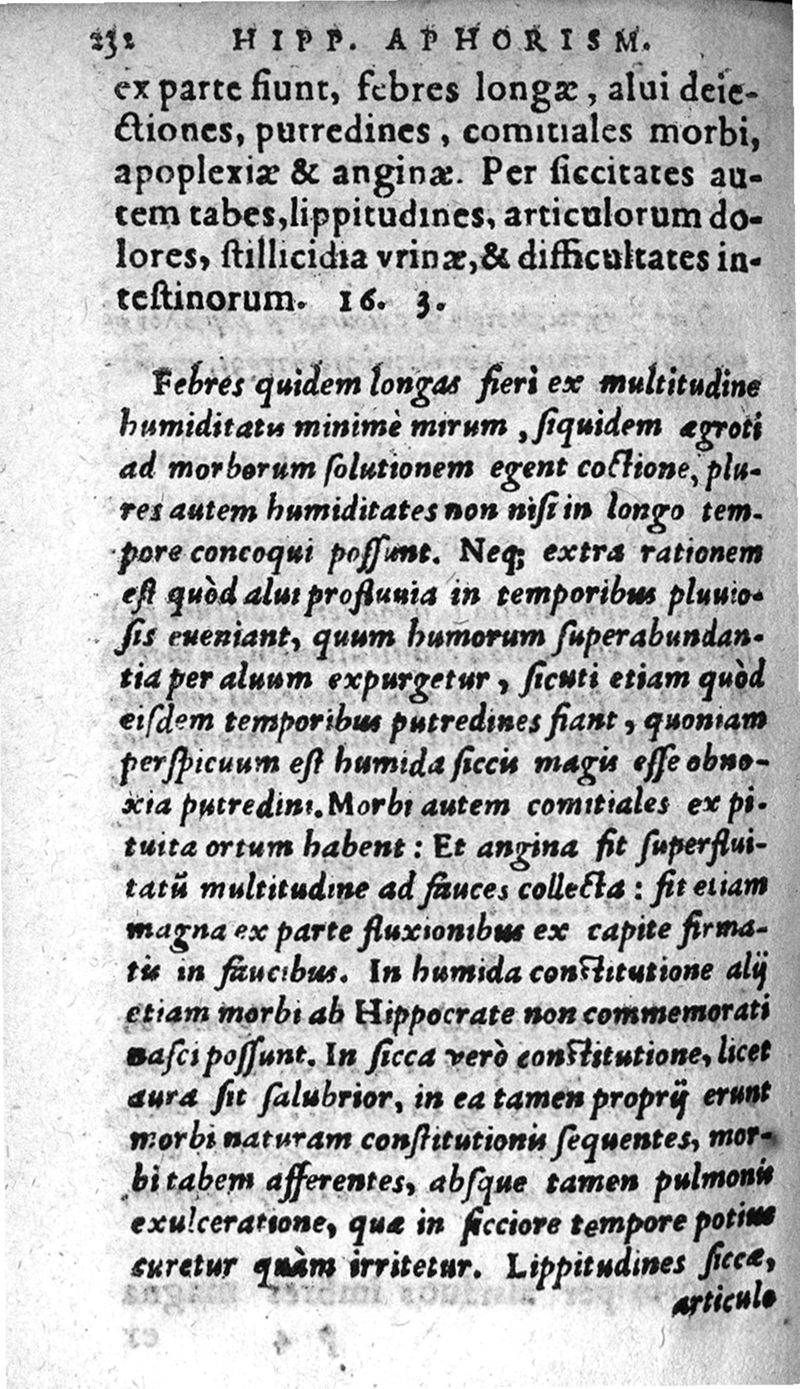 232 HIPP. APHORISM.
ex parte ſiunt, febres longæ, alui deie-
ctiones, putredines, comitiales morbi,
apoplexiæ & anginæ. Per ſiccitates au-
tem tabes, lippitudines, articulorum do-
lores, ſtillicidia vrinæ, & difficultates in-
teſtinorum. 16. 3.
Febres quidem longas fieri ex multitudine
humiditatis minimè mirum, ſiquidem ægroti
ad morborum ſolutionem egent coctione, plu-
res autem humiditates non niſi in longo tem-
pore concoqui poſſunt. Neq; extra rationem
eſt quòd alui profluuia in temporibus pluuio-
ſis eueniant, quum humorum ſuperabundan-
tia per aluum expurgetur, ſicuti etiam quòd
eiſdem temporibus putredines fiant, quoniam
perſpicuum eſt humida ſiccis magis eſſe obno-
xia putredini. Morbi autem comitiales ex pi-
tuita ortum habent: Et angina fit ſuperflui-
tatũ multitudine ad fauces collecta: fit etiam
magna ex parte fluxionibus ex capite firma-
tis in faucibus. In humida conſtitutione alij
etiam morbi ab Hippocrate non commemorati
naſci poſſunt. In ſicca verò conſtitutione, licet
aura ſit ſalubrior, in ea tamen proprij erunt
morbi naturam conſtitutionis ſequentes, mor-
bi tabem afferentes, abſque tamen pulmonis
exulceratione, quæ in ſicciore tempore potius
curetur quàm irritetur. Lippitudines ſiccæ,
articulo